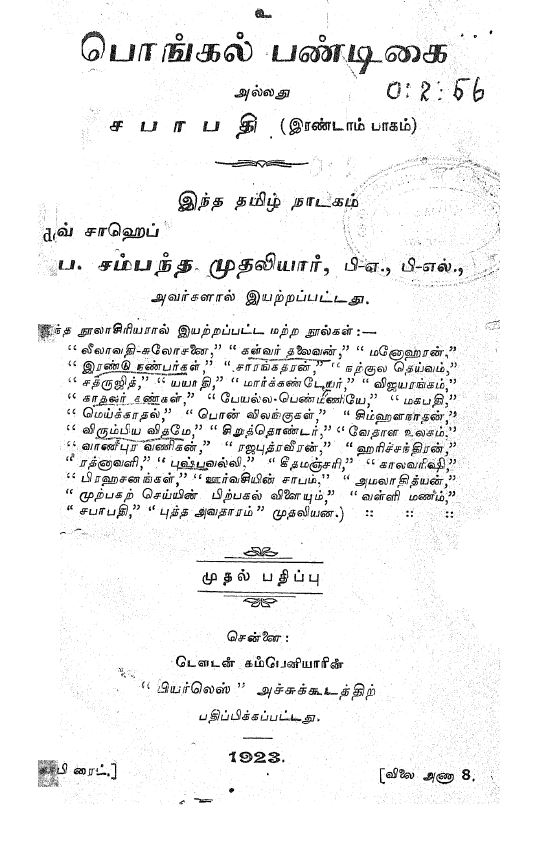 உ
பொங்கல் பண்டிகை
அல்லது
0:2:56
சபாபதி (இரண்டாம் பாகம்)
இந்த தமிழ் நாடகம்
வ் சாஹெப்
ப. சம்பந்த முதலியார், பி-எ., பி-எல்.,
அவர்களால் இயற்றப்பட்டது.
ந்த நூலாசிரியரால் இயற்றப்பட்ட மற்ற நூல்கள் :—
“ லீலாவதி-சுலோசனை,” “ கள்வர் தலைவன்,” “ மனோஹரன்,”
“ இரண்டு நண்பர்கள்,” “ சாரங்கதரன்,” “ சற்குல தெய்வம்,”
“ சதிருஜித்,” “ யயாதி,” “ மார்க்கண்டேயர்,” “ விஜயரங்கம்,”
“ காதலர் கண்கள்,” “ பேயல்ல-பெண்மணியே,” “ மகபதி,”
“ மெய்க்காதல்,” “ பொன் விலங்குகள்,” “ சிம்ஹளநாதன்,”
“ விரும்பிய விதமே,” “ சிறுத்தொண்டர்,” “ வேதாள உலகம்.”
“ வாணீபுர வணிகன்,” “ ரஜபுத்ரவீரன்,” “ ஹரிச்சந்திரன்,”
“ ரத்னாவளி,” “ புஷ்பவல்லி.” “ கீதமஞ்சரி,” “ காலவரிஷி,”
“ பிரஹசனங்கள்,” “ ஊர்வசியின் சாபம்.” “ அமலாதித்யன்,”
“ முற்பகற் செய்யின் பிற்பகல் விளையும்,” “ வள்ளி மணம்,”
“ சபாபதி,” “ புத்த அவதாரம் ” முதலியன.) :: :: ::
முதல் பதிப்பு
சென்னை :
டௌடன் கம்பெனியாரின்
“ பியர்லெஸ் ” அச்சுக்கூடத்திற்
பதிப்பிக்கப்பட்டது.
1923.
பி ரைட்.] [விலை அணா 8.